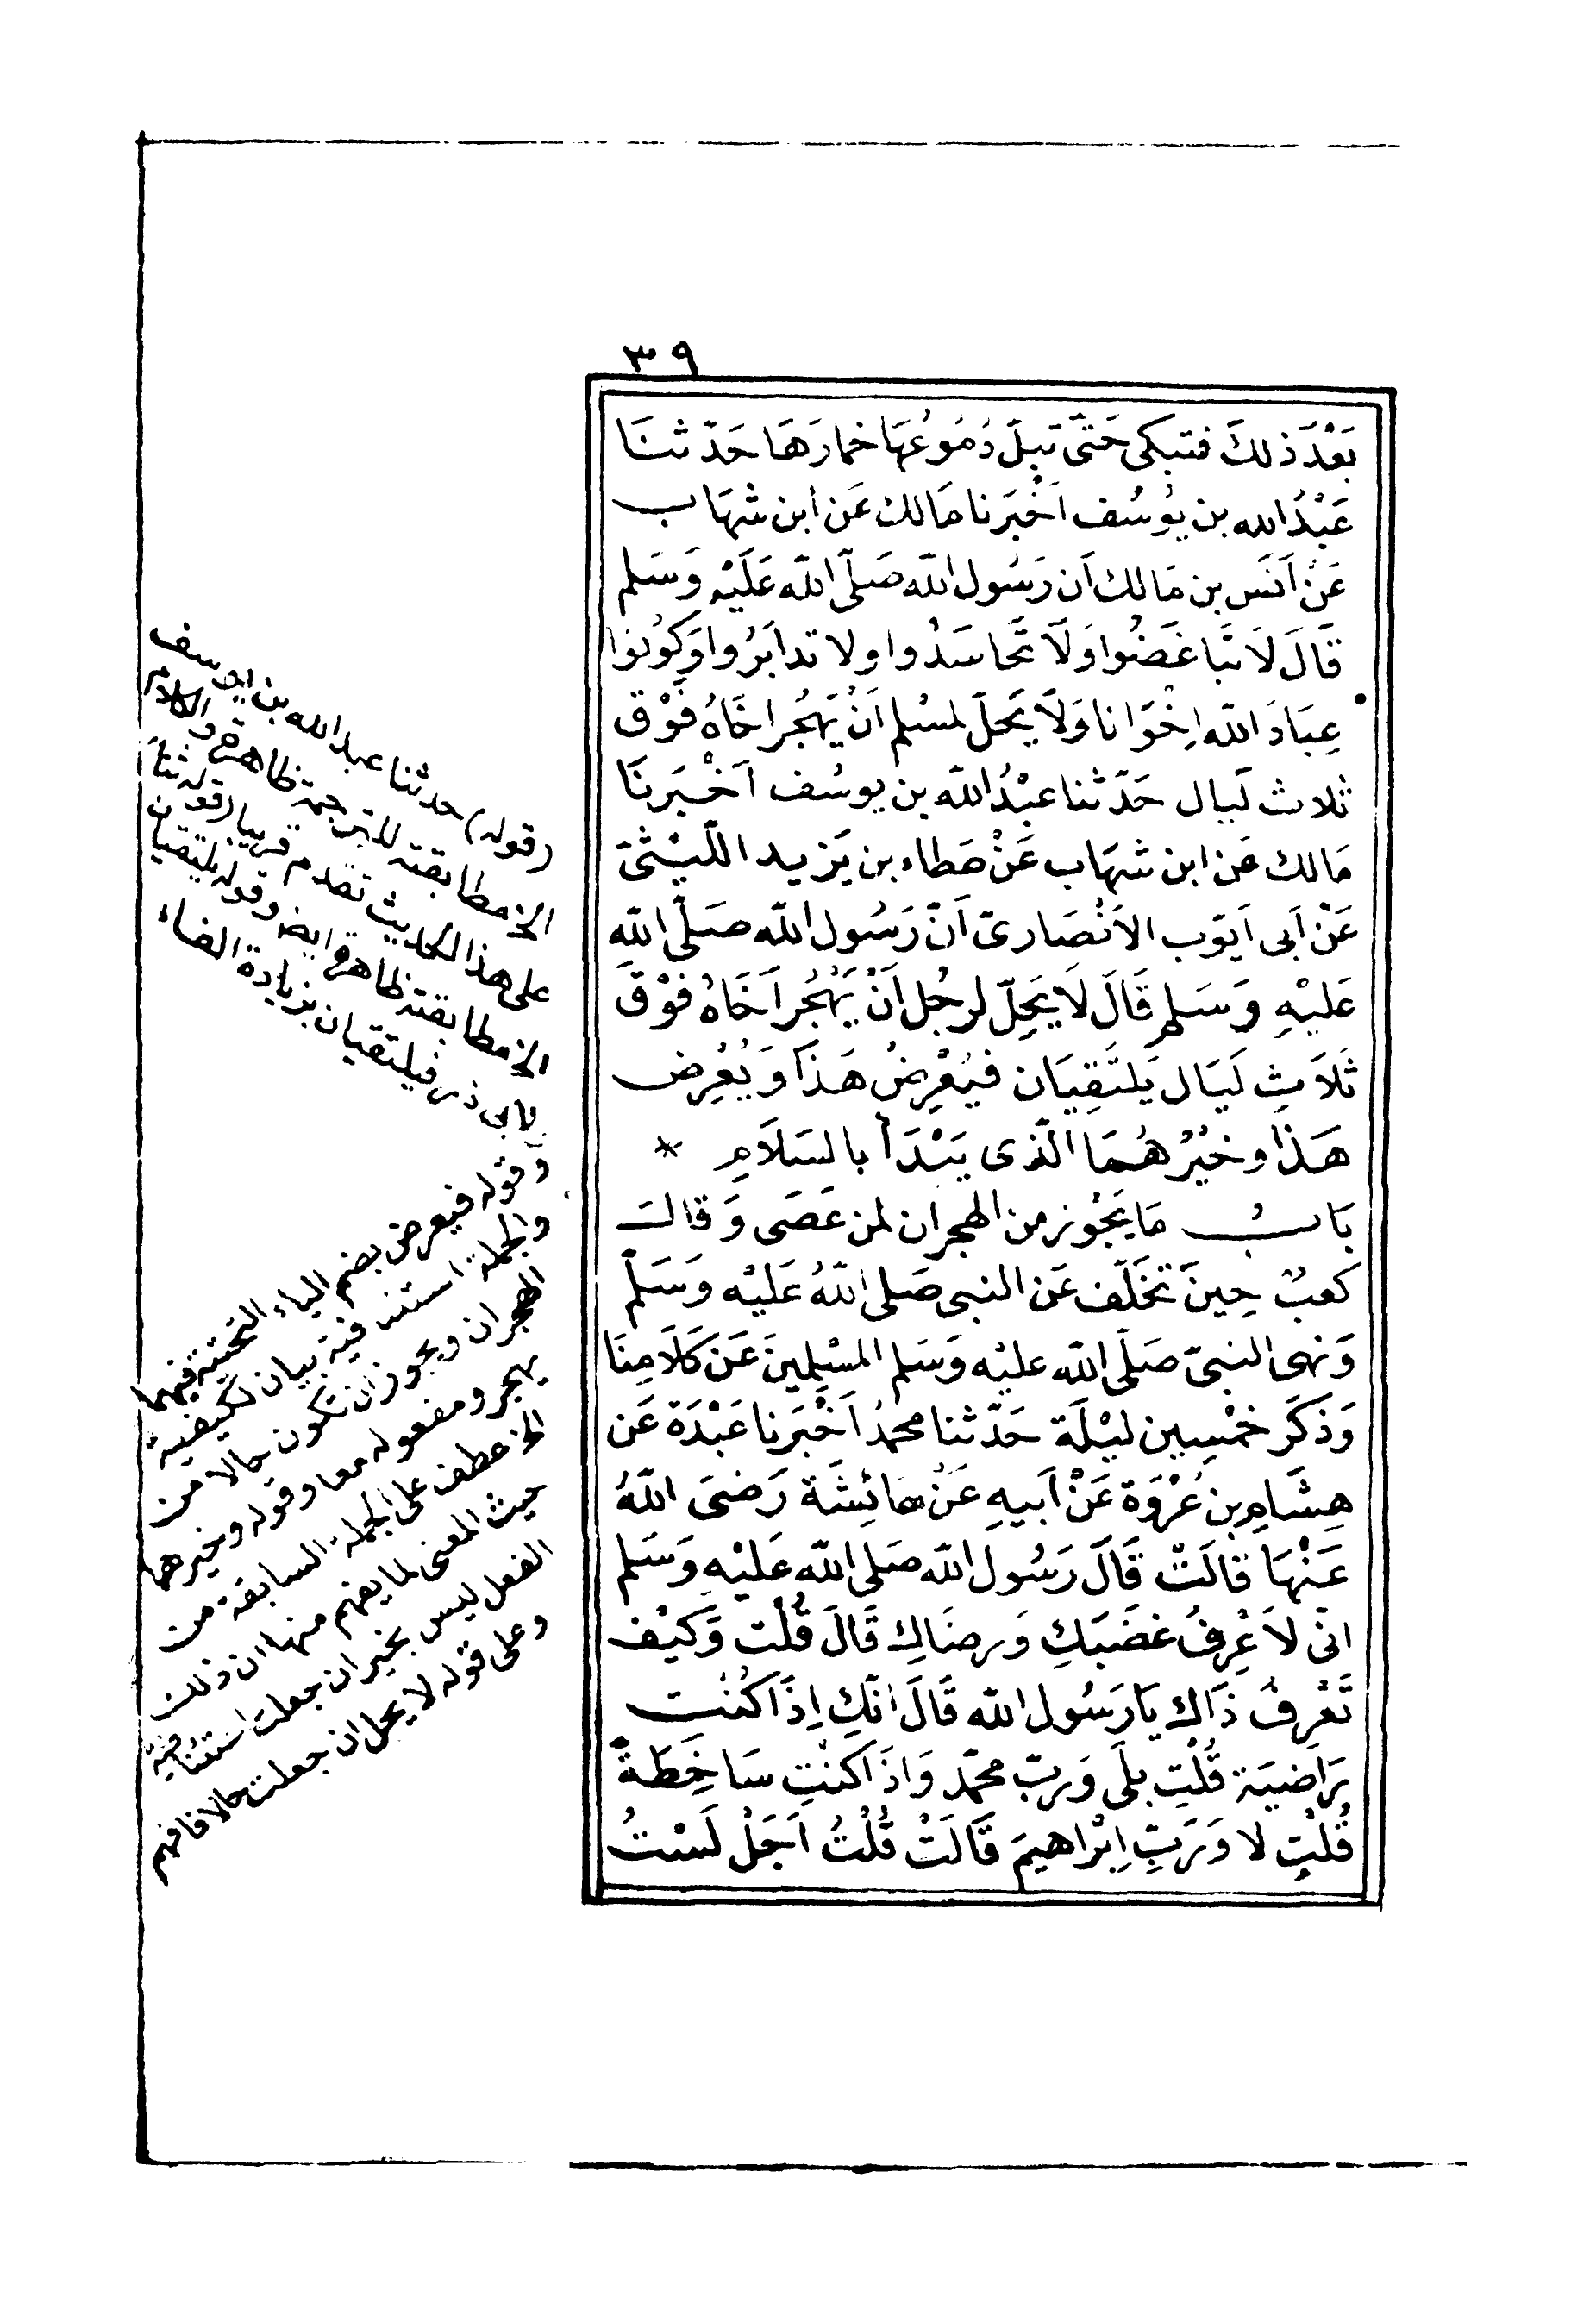 ٣٩
بَعْدَ ذلكَ فتبكى حَتّى تبلّ دُمُوعُهَا خمارَهَا حَدّثنَا
عَبْدُ الله بن يُوسُف اَخْبَرَنا مَالك عَن ابن شهَاب
عَنْ اَنَس بن مَالك اَن رَسُول الله صَلّى الله عَلَيْه وَسَلم
قَالَ لَا تبَاغَضُوا وَلَا تَحَاسَدُوا ولا تدابَرُوا وَكُونوا
عِبَادَ الله اِخْوَانا وَلَا يَحلّ لمسْلم اَنْ يَهْجُر اخَاهُ فَوْق
ثلاث لَيال حَدّثنا عبْدُ الله بن يوسُف اَخْبَرنَا
مَالك عَن ابن شهَاب عَنْ عَطاء بن يَزيد اللّيْثىّ
عَنْ اَبى اَيّوب الاَنْصَارىّ اَنّ رَسُول الله صَلّى اللهِ
عَليْهِ وَسَلم قَالَ لَا يَحِلّ لرجُل اَنْ يَهْجُر اَخَاهُ فوْقَ
ثَلَاثِ لَيَال يَلتَقِيَان فيُعْرِضُ هَذَا وَيُعْرِض
هَذا وخيْرُهُمَا الّذى يَبْدَأ بالسَلَامِ *
بَابُ مَا يَجُوز من الهجران لمن عَصَى وَقالَ
كَعبٌ حِينَ تخَلّف عَن النبى صَلى اللهُ عَليْه وَسَلّم
وَنهى النبىّ صَلّى الله عليْه وَسَلم المسْلِمِينَ عَن كَلَامِنَا
وَذَكَر خمْسِين ليْلَة حَدّثنا محمدُ اَخْبَرنا عَبْدَة عَن
هِشَامِ بن عُرْوَة عَنْ اَبيهِ عَنْ عَائشَة رَضىَ اللهُ
عَنْهَا قالَتْ قَالَ رَسُول الله صَلى الله عَليْه وَسَلم
انى لاَ عْرِفُ غضَبَكِ وَرضَاكِ قَالَ قُلْت وَكيْف
تَعْرِفُ ذَاكِ يَا رَسُول الله قَالَ انّكِ اِذَا كُنْتِ
رَاضيَة قُلْتِ بلَى وَربّ محمّد وَاذَا كنْتِ سَاخِطَةً
قُلْتِ لا وَرَبِّ اِبْرَاهيمَ قَالَتْ قُلْتُ اَجَلْ لَسْتُ
(قوله) حدثنا عبد الله بن يوسف
الخ مطابقته للترجمة ظاهرة والكلام
على هذا الحديث تقدم قريبا (قوله ثنا)
الخ مطابقته ظاهرة ايضا وقوله يلتقيان
لابى ذر فيلتقيان بزيادة الفاء
وقوله فيعرض بضم الياء التحتية فيهما
والجملة استئنافية بيان لكيفية
الهجران ويجوز ان تكون حالا من
يهجر ومفعوله معا وقوله وخيرهما
الخ عطف على الجملة السابقة من
حيث المعنى لما يفهم منها ان ذلك
الفعل ليس بخير ان جعلت استئنافية
وعلى قوله لا يحل ان جعلت حالا فافهم